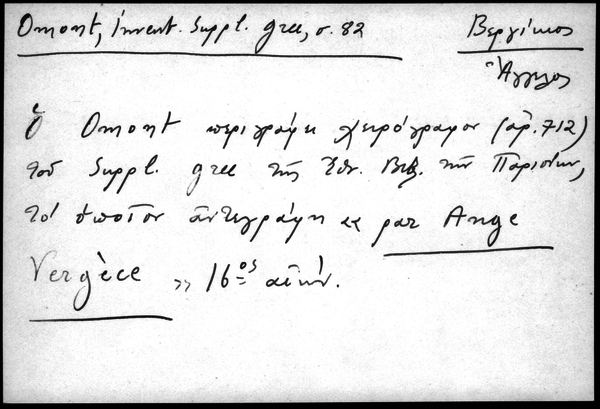 Omont, Invent. Suppl. grec, σ. 82
Βεργίκιος
Ἄγγελος
Ὁ Omont περιγράφει χειρόγραφον (ἀρ. 712)
τοῦ Suppl. grec τῆς Ἐθν. Βιβ. τῶν Παρισίων,
τὸ ὁποῖον ἀντεγράφη «par Ange
Vergèce» 16ος αἰών.